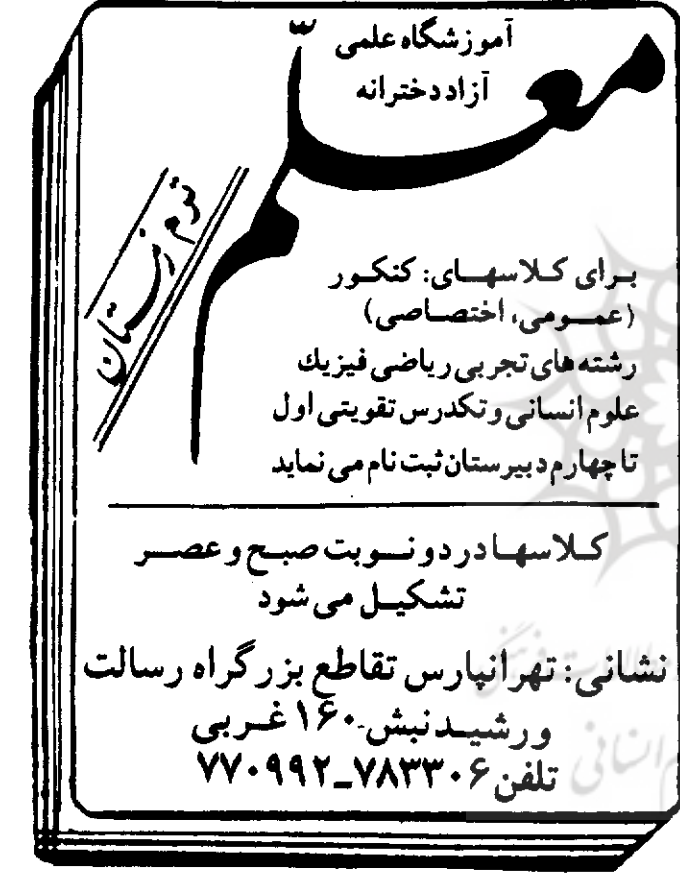 آموزشگاه علمی
آزاد دخترانه
معلّم
ترم زمستان
برای کلاسهای: کنکور
(عمومی، اختصاصی)
رشته های تجربی ریاضی فیزیك
علوم انسانی و تکدرس تقویتی اول
تا چهارم دبیرستان ثبت نام می نماید
کلاسها در دو نوبت صبح و عصر
تشکیل می شود
نشانی: تهرانپارس تقاطع بزرگراه رسالت
و رشید نبش ۱۶۰ غربی
تلفن ۷۸۳۳۰۶_۷۷۰۹۹۲